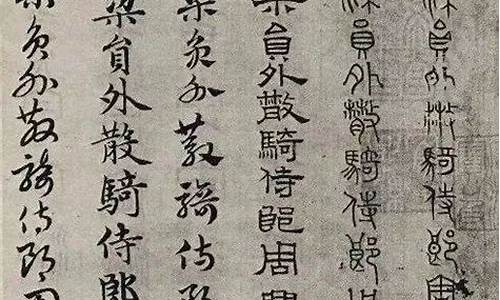 梁員外散騎侍郎周
梁員外散騎侍郎周
梁員外散騎侍郎周興
梁員外散騎侍郎
梁員外散騎侍郎
梁員外散騎侍郎周